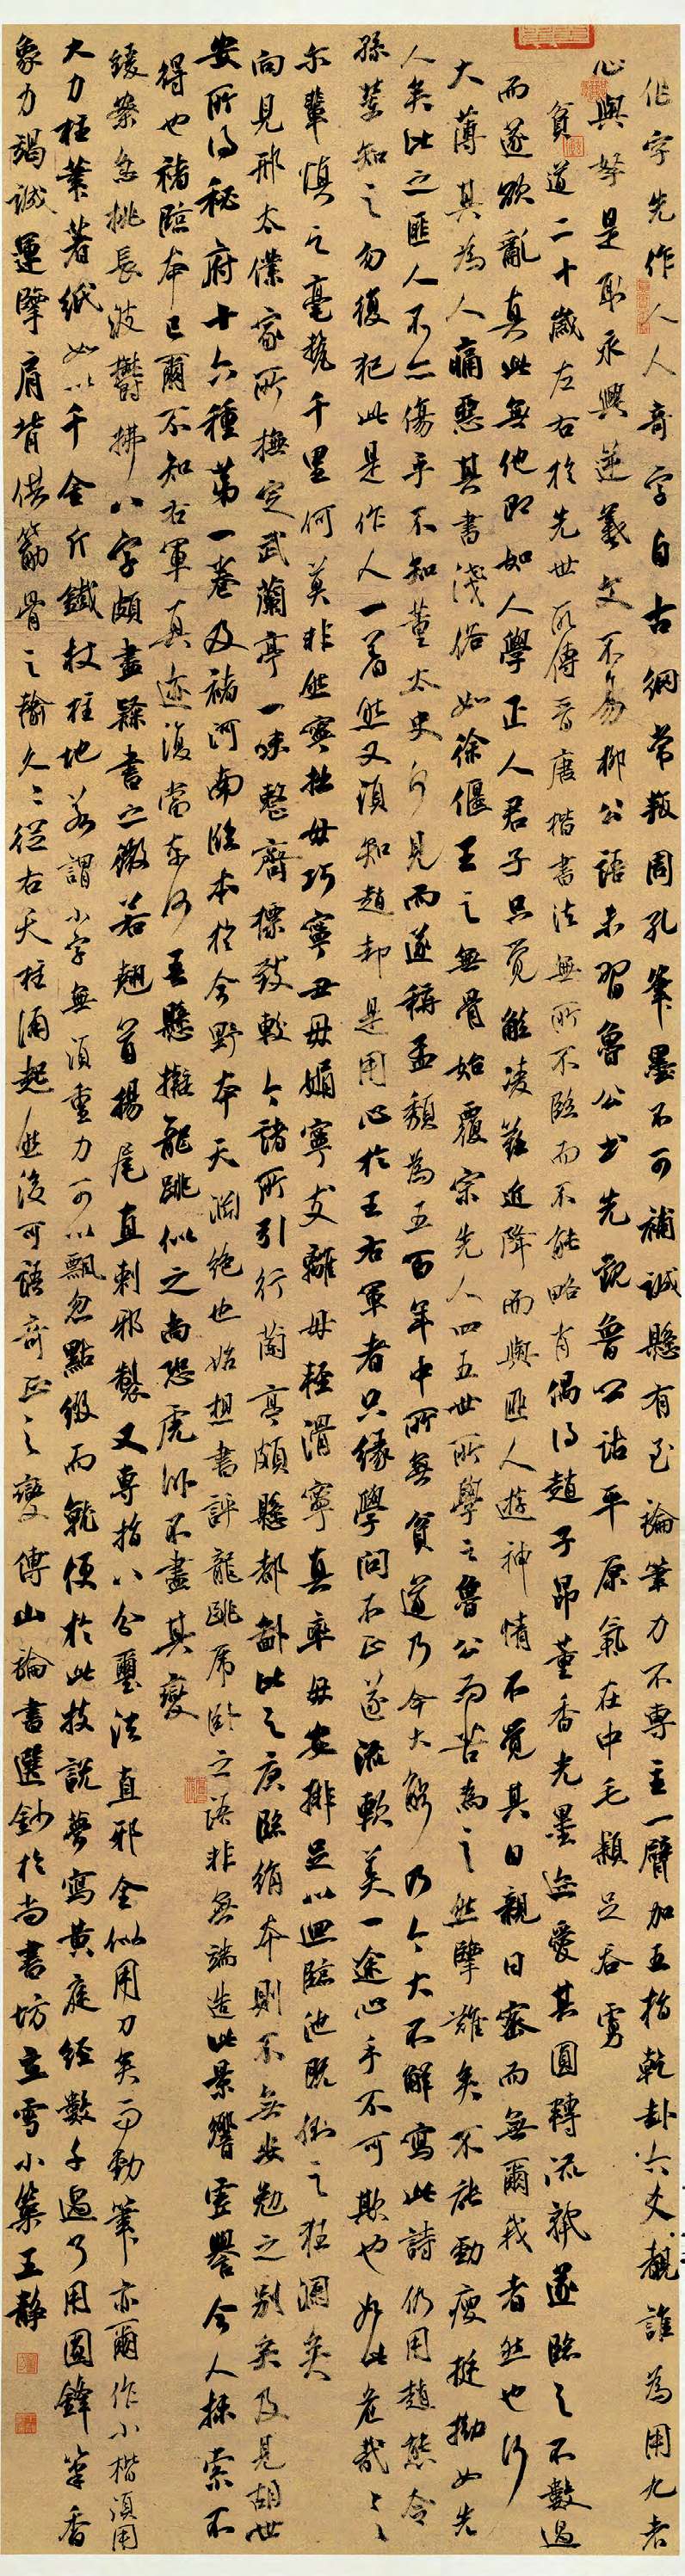 作字先作人人奇字自古綱常叛周孔筆墨不可補誠懸有至論筆力不專主一臂加五指乾卦六爻覩誰為用九者
心與孥是取永興逆羲文不易柳公語未習魯公書先觀魯公詁平原氣在中毛穎足吞虜
貧道二十歲左右於先世所傳晉唐楷書法無所不臨而不能略肖偶得趙子昂董香光墨迹愛其圓轉流麗遂臨之不數過
而遂欲亂真此無他即如人學正人君子只覺觚棱難近降而與匪人遊神情不覺其日親日密而無爾我者然也行
大薄其為人痛惡其書淺俗如徐偃王之無骨始覆宗先人四五世所學之魯公而苦為之然擘難矣不能勁瘦挺拗如先
人矣比之匪人不亦傷乎不知董太史何見而遂稱孟頫為五百年中所無貧道乃今大解乃今大不解寫此詩仍用趙態令
孫輩知之勿復犯此是作人一着然又須知趙卻是用心於王右軍者只緣學問不正遂流軟美一途心手不可欺也如此危哉危哉
爾輩慎之毫釐千里何莫非然寧拙毋巧寧醜毋媚寧支離毋輕滑寧真率毋安排足以迴臨池既倒之狂瀾矣
向見邢太僕家所撫定武蘭亭一味整齊標致較今諸所引行蘭亭頗懸都郤比之庚臨絹本則不無安勉之別矣及見胡世
安所得秘府十六種第一卷及褚河南臨本於今野本天淵絶也始想書評龍跳虎臥之語非無端造此景響虛譽令人探索不
得也褚臨本已爾不知右軍真迹復當奈何吾懸擬龍跳似之尚恐虎臥不盡其變
綫縈忽挑長波鬱拂八字頗盡隸書之微若翹首揚尾直刺邪製又專指八分璽法直邪全似用刀矣而勁筆亦爾作小楷須用
大力柱筆著紙如以千金斤鐵杖柱地若謂小字無須重力可以飄忽點綴而就便於此技說夢寫黃庭經數千過了用圓鋒筆香
象力竭誠運擘肩背供筋骨之輸久久從右天柱涌起然後可語奇正之變傅山論書選鈔於尚書坊立雪小築王靜